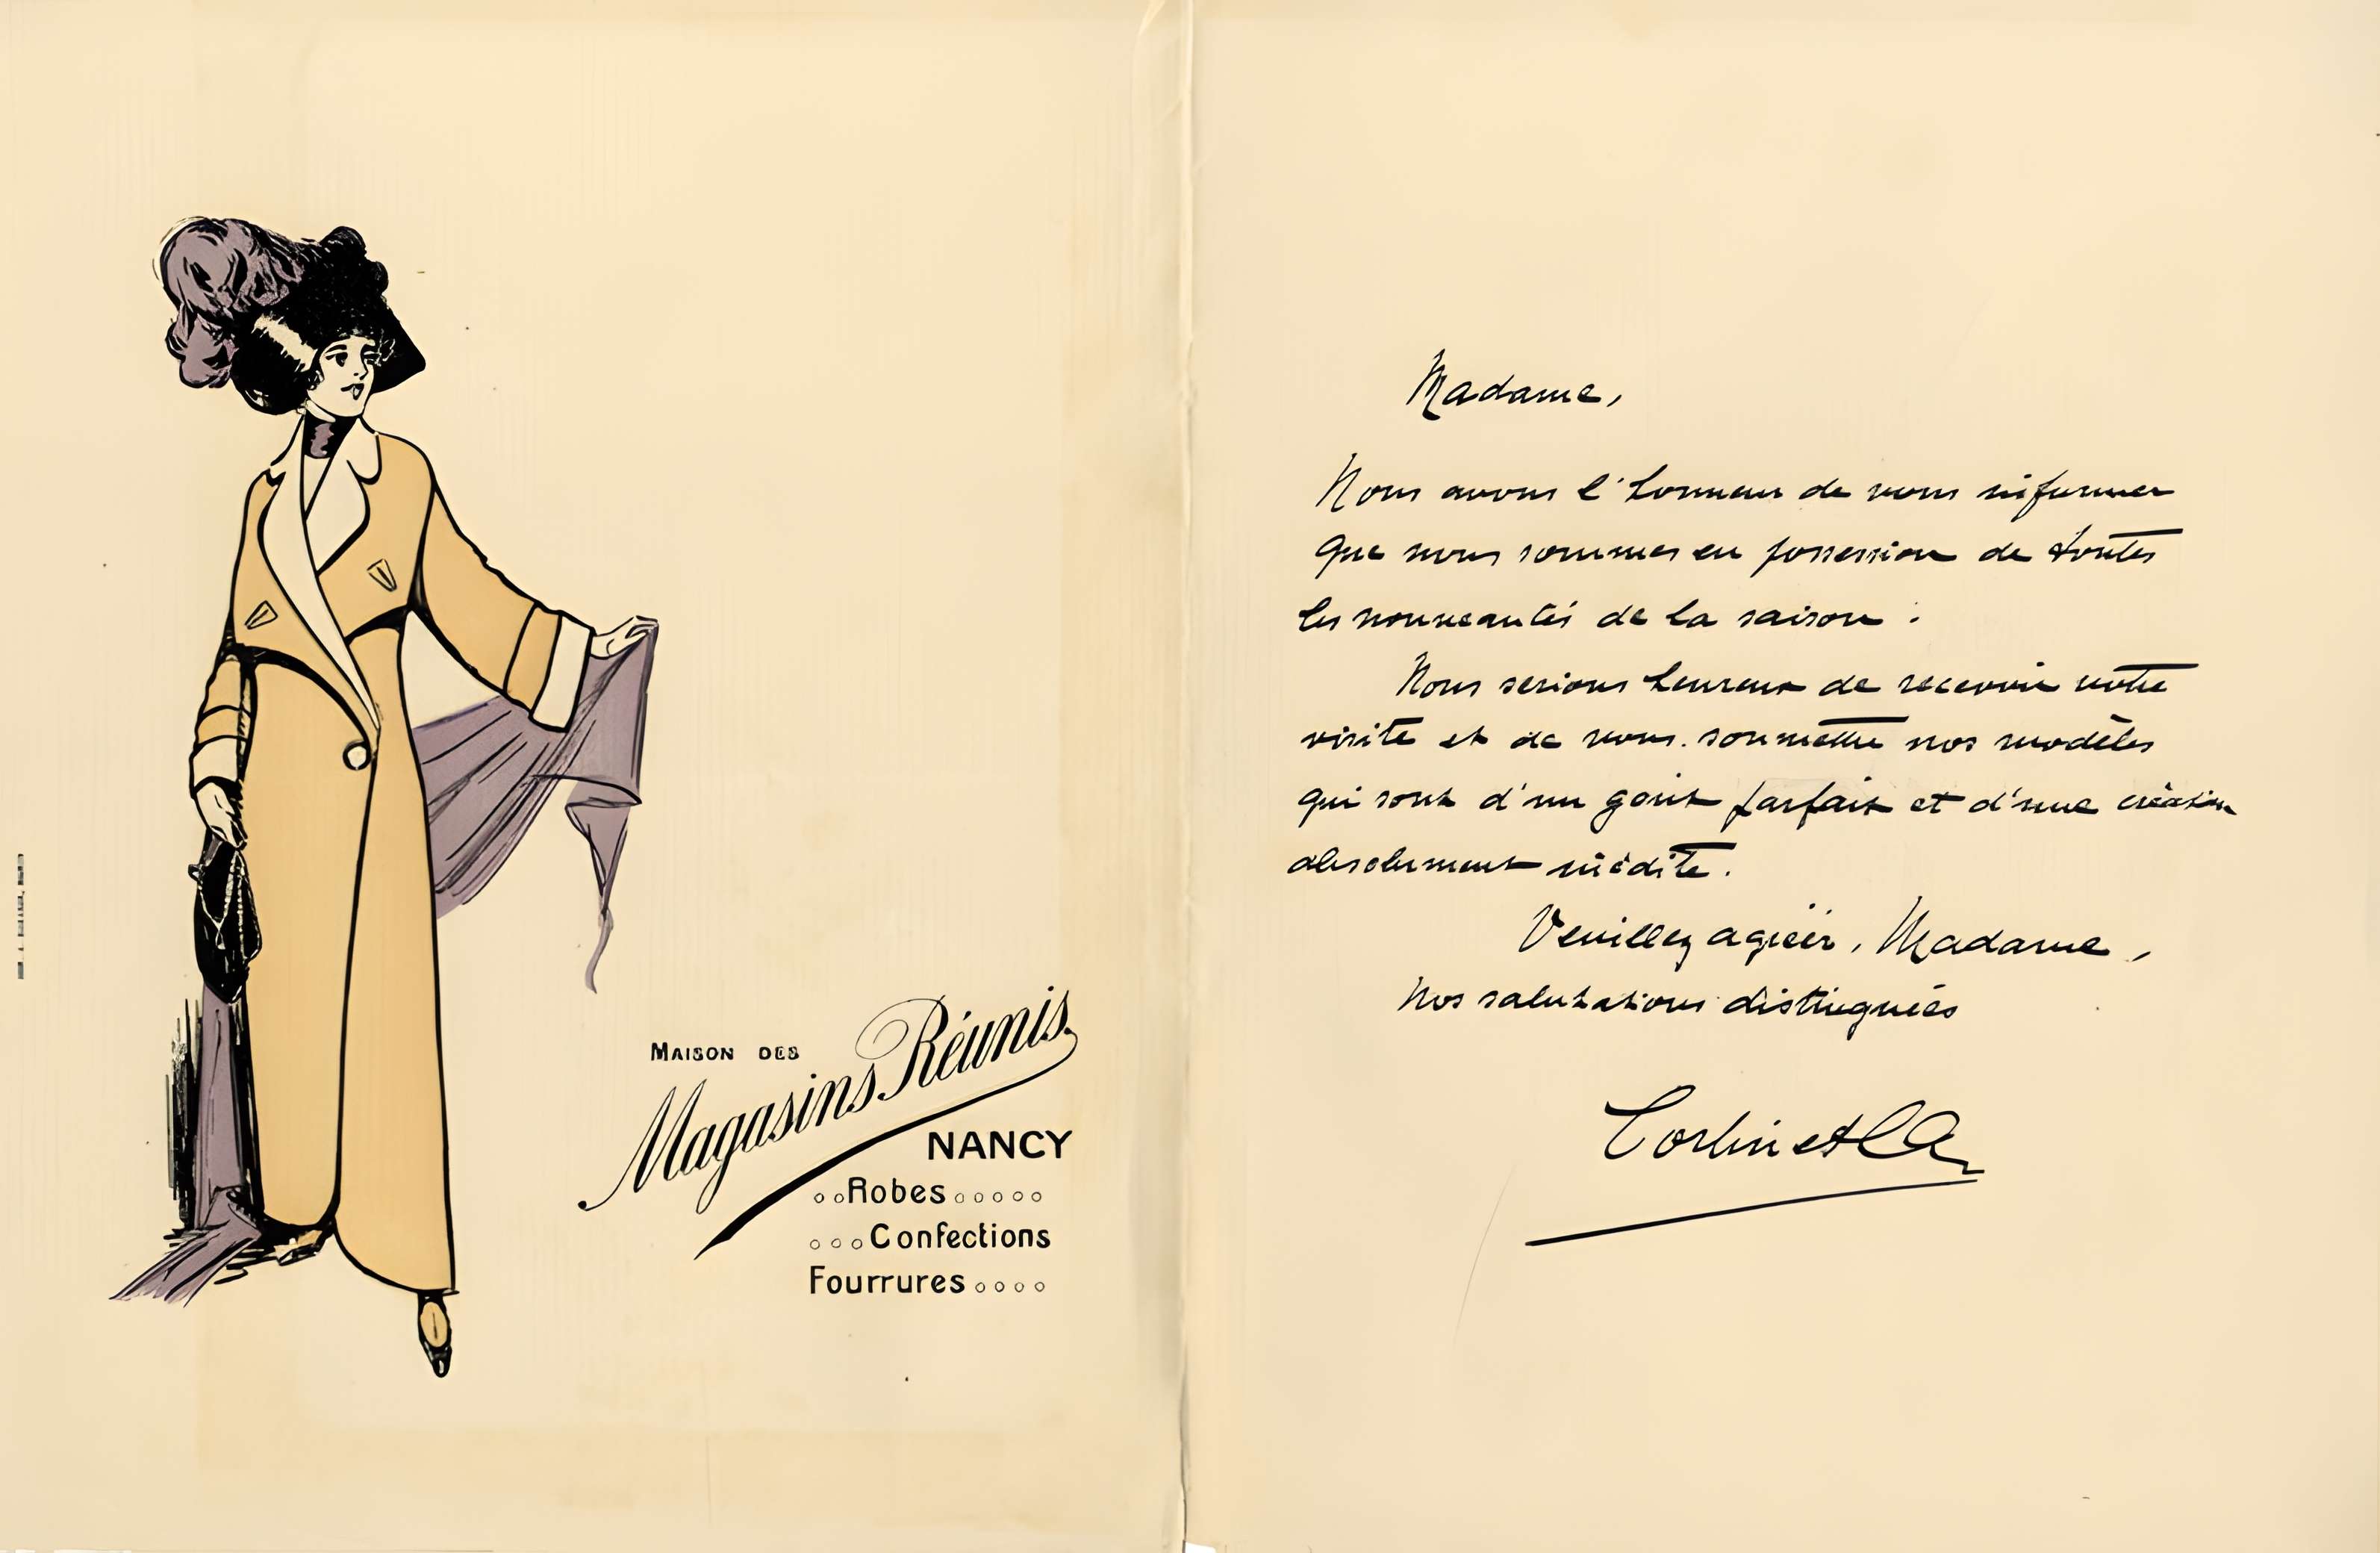 MAISON DES
Magasins Réunis
NANCY
Robes
Confections
Fourrures
Madame,
Nous avons l'honneur de vous informer
que nous sommes en possession de toutes
les nouveautés de la saison.
Nous serions heureux de recevoir votre
visite et de vous soumettre nos modèles
qui sont d'un goût parfait et d'une création
absolument inédite.
Veuillez agréer, Madame,
nos salutations distinguées
Corbin et Cie